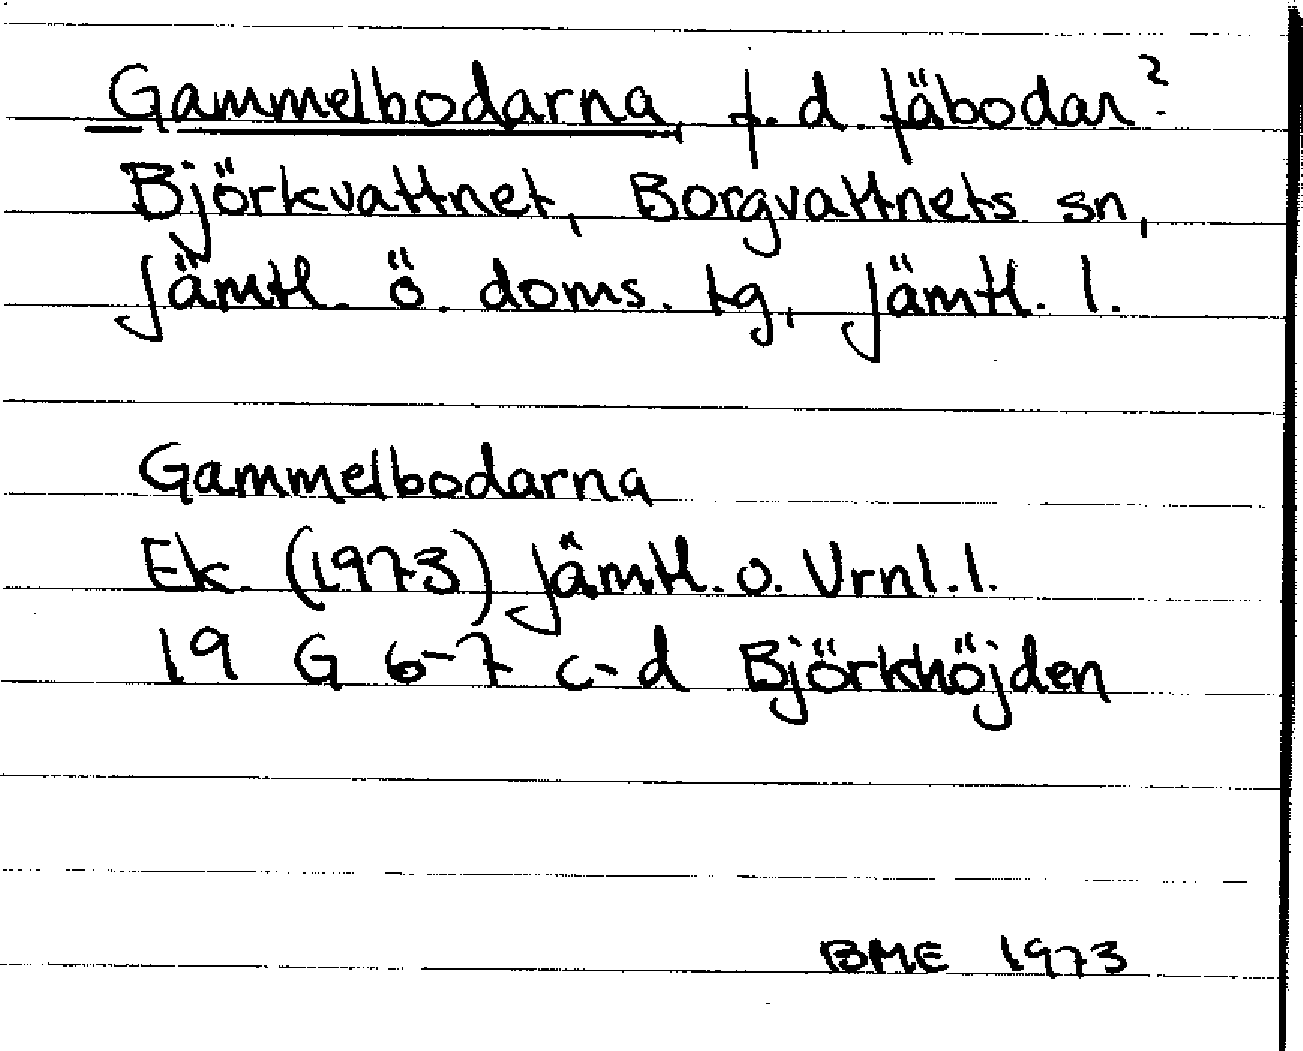 Gammelbodarna, f. d. fäbodar?
Björkvattnet, Borgvattnets sn,
Jämtl. ö. doms. tg, Jämtl. l.
Gammelbodarna
Ek. (1973) Jämtl. o. Vrnl. l.
19 G 6-7 c-d Björkhöjden
BME 1973